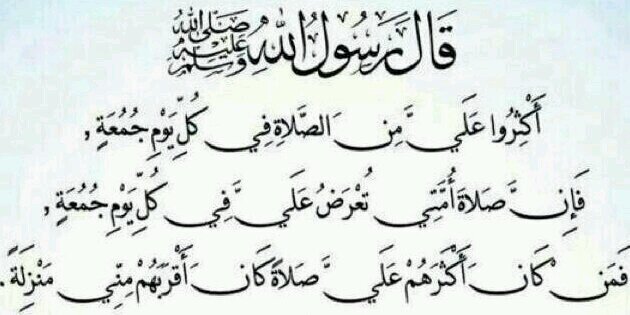 قَالَ رَسُولُ اللهِ صَلَّى اللهُ عَلَيْهِ وَسَلَّمَ
أَكْثِرُوا عَلَيَّ مِنَ الصَّلَاةِ فِي كُلِّ يَوْمِ جُمُعَةٍ ,
فَإِنَّ صَلَاةَ أُمَّتِي تُعْرَضُ عَلَيَّ فِي كُلِّ يَوْمِ جُمُعَةٍ ,
فَمَنْ كَانَ أَكْثَرَهُمْ عَلَيَّ صَلَاةً كَانَ أَقْرَبَهُمْ مِنِّي مَنْزِلَةً .